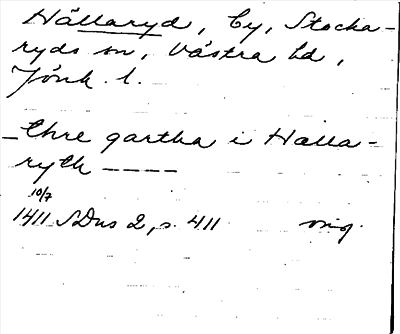 Hållaryd, by, Stocka-
ryds sn, Västra hd,
Jönk. l.
thre gartha i Halla-
ryth ----
10/7
1411 SDns 2, s. 411 orig.